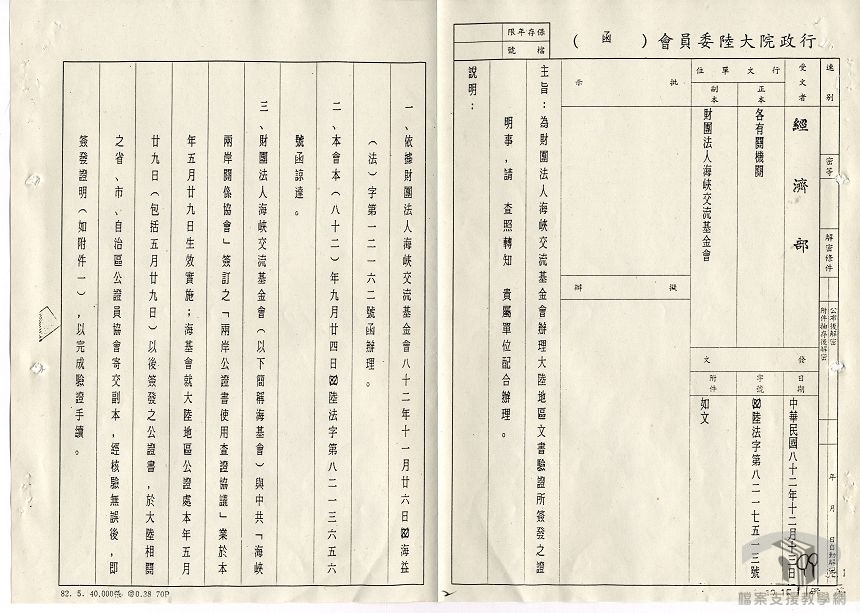 行政院大陸委員會（函）
保存年限
檔號
速別
密等
解密條件
公布後解密
附件抽存後解密
年 月 日自動解密
受文者
經濟部
行文單位
正本
各有關機關
副本
財團法人海峽交流基金會
發文
日期
中華民國八十二年十二月十三日
字號
(82)陸法字第八二一七五一三號
附件
如文
批示
擬辦
主旨：為財團法人海峽交流基金會辦理大陸地區文書驗證所簽發之證
明事，請 查照轉知 貴屬單位配合辦理。
說明：
一、依據財團法人海峽交流基金會八十二年十一月廿六日(82)海益
（法）字第一二一六二號函辦理。
二、本會本（八十二）年九月廿四日(82)陸法字第八二一三六五六
號函諒達。
三、財團法人海峽交流基金會（以下簡稱海基會）與中共「海峽
兩岸關係協會」簽訂之「兩岸公證書使用查證協議」業於本
年五月廿九日生效實施；海基會就大陸地區公證處本年五月
廿九日（包括五月廿九日）以後簽發之公證書，於大陸相關
之省、市、自治區公證員協會寄交副本，經核驗無誤後，即
簽發證明（如附件一），以完成驗證手續。
82. 5. 40,000張 @0.38 70P
檔案支援教學網